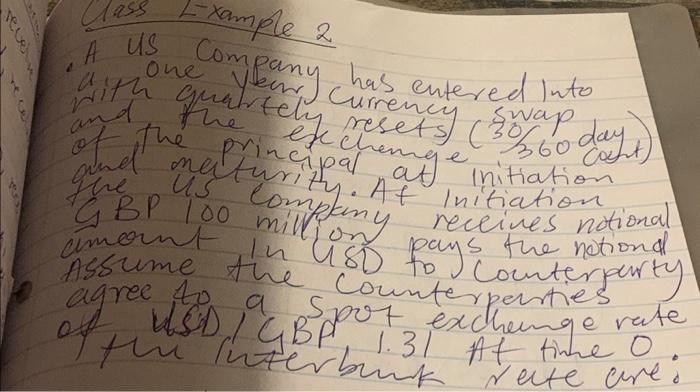 Class Example 2
. A US Company has entered Into
a one Year Currency swap
with quartely resets (30/360 day Count)
and the exchange
of the principal at Initiation
and maturity. At Initiation
the US Company receives notional
GBP 100 million pays the notional
amount In USD to Counterparty
Assume the Counterparties
agree to a spot exchange rate
of USD/GBP 1.31 At time 0
the interbank rate are: